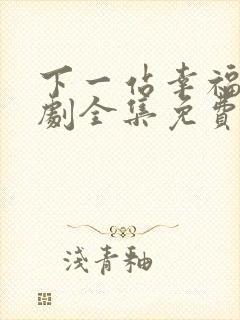 下一佔幸福
劇全集免費
淺青釉